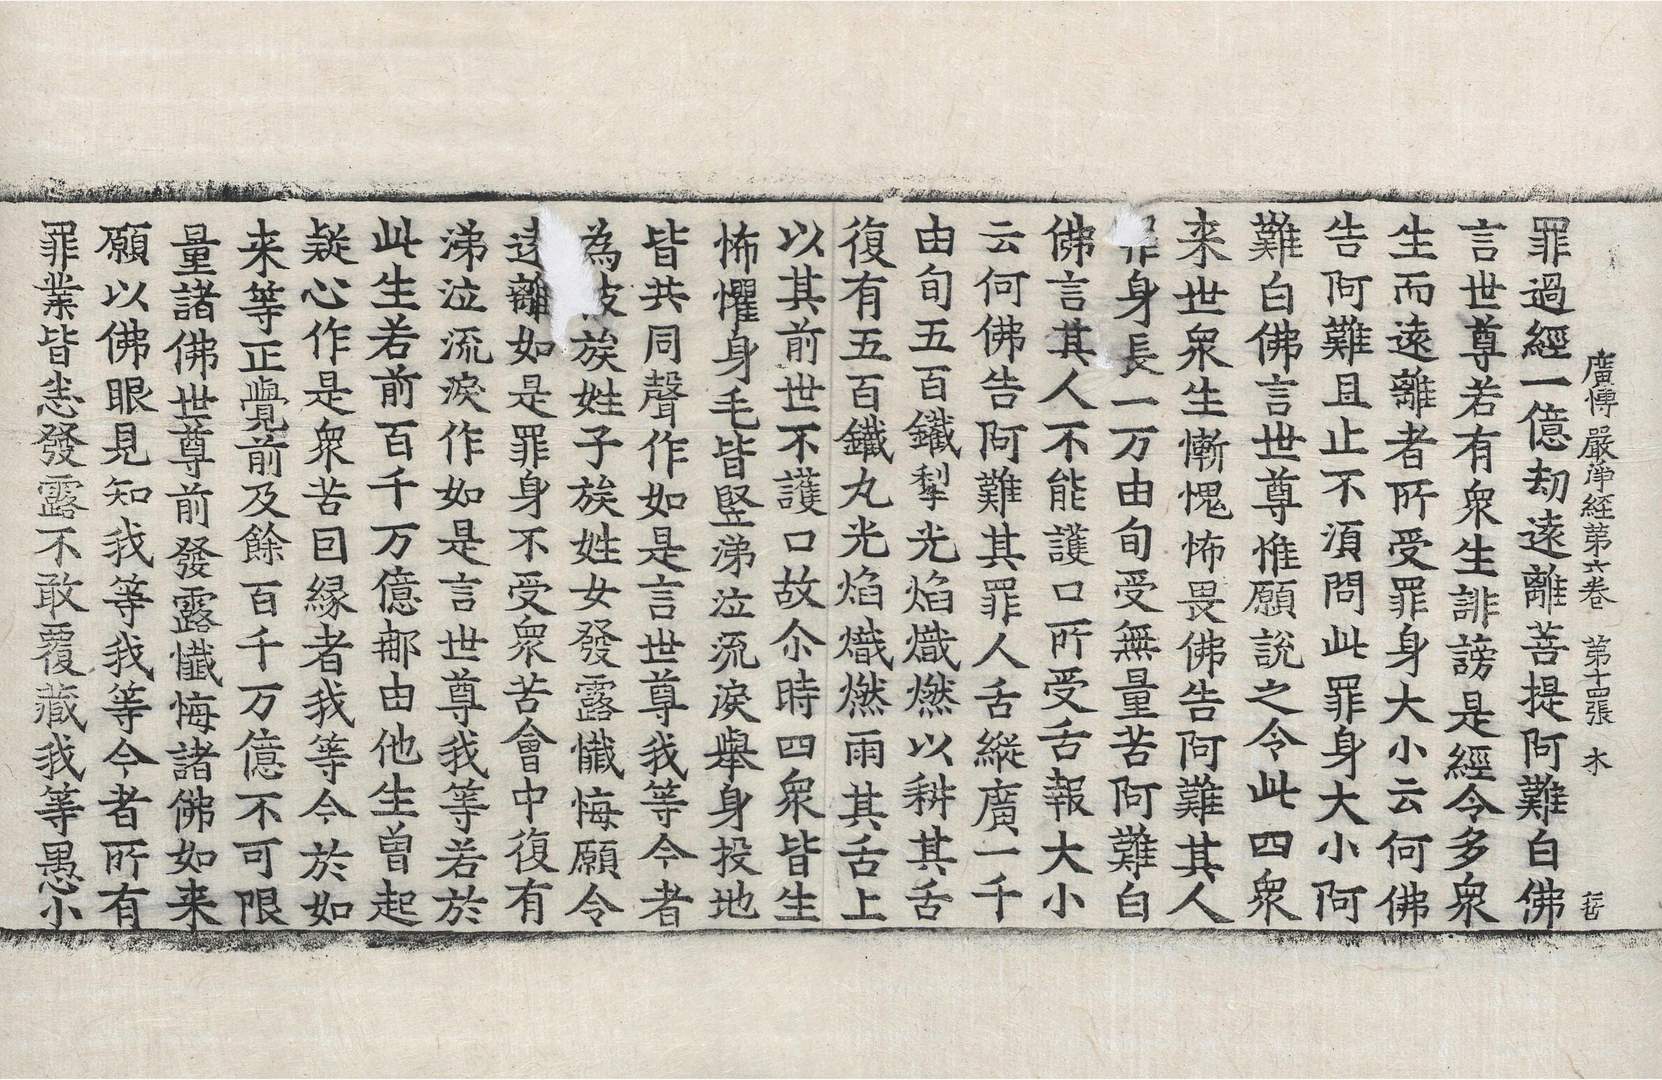 廣博嚴淨経第六卷　第十四張　木
罪過經一億劫遠離菩提阿難白佛
言世尊若有衆生誹謗是經令多衆
生而遠離者所受罪身大小云何佛
告阿難且止不湏問此罪身大小阿
難白佛言世尊惟願說之令此四衆
来世衆生慚愧怖畏佛告阿難其人
罪身長一万由旬受無量苦阿難白
佛言其人不能護口所受舌報大小
云何佛告阿難其罪人舌縱廣一千
由旬五百鐵犁光焰熾燃以耕其舌
復有五百鐵丸光焰熾燃雨其舌上
以其前世不護口故尒時四衆皆生
怖懼身毛皆竪涕泣流淚舉身投地
皆共同聲作如是言世尊我等今者
為彼族姓子族姓女發露懺悔願令
遠離如是罪身不受衆苦會中復有
涕泣流淚作如是言世尊我等若於
此生若前百千万億那由他生曾起
疑心作是衆苦囙緣者我等今於如
来等正覺前及餘百千万億不可限
量諸佛世尊前發露懺悔諸佛如来
願以佛眼見知我等我等今者所有
罪業皆悉發露不敢覆藏我等愚小